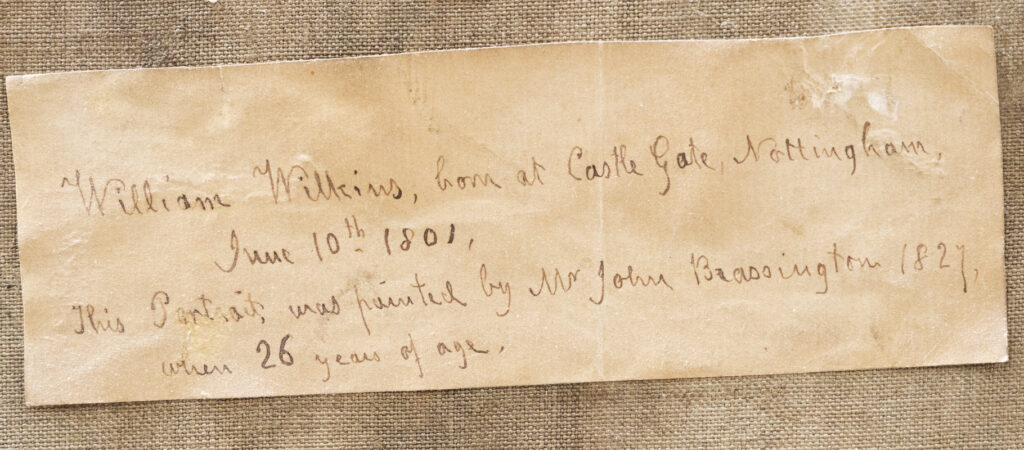 William Wilkins, born at Castle Gate, Nottingham,
June 10th 1801,
This Portrait, was painted by Mr John Brassington 1827,
when 26 years of age.